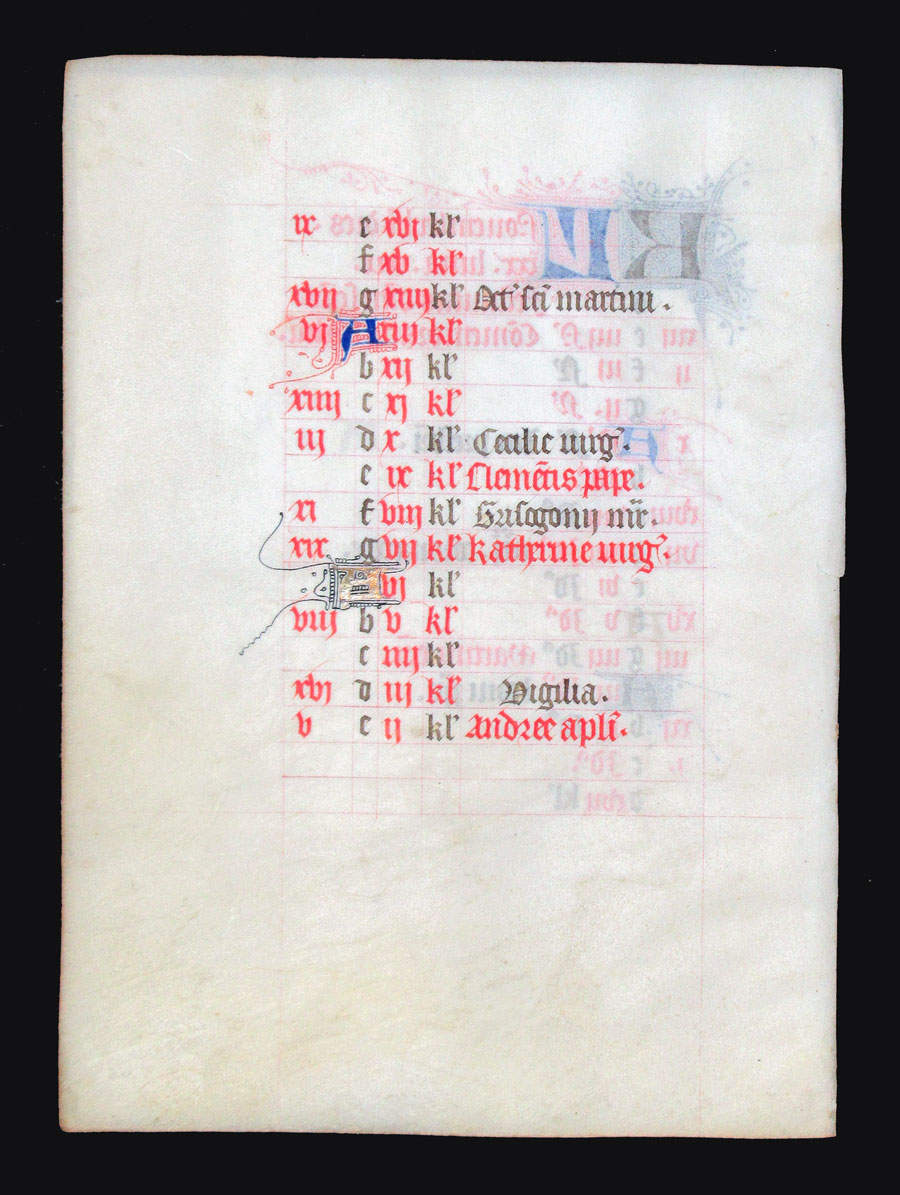 ix e xvj kl'
f xv kl'
xvij g xiiij kl' Oct' sci martini .
vj A xiij kl'
b xij kl'
xiiij c xj kl'
iij d x kl' Cecilie uirg'.
e ix kl' Clemētis pape.
xi f viij kl' Grisogonij mr̄.
xix g vij kl' Katherine uirg'.
A vj kl'
viij b v kl'
c iiij kl'
xvj d iij kl' Vigilia.
v e ij kl' Andree apli.